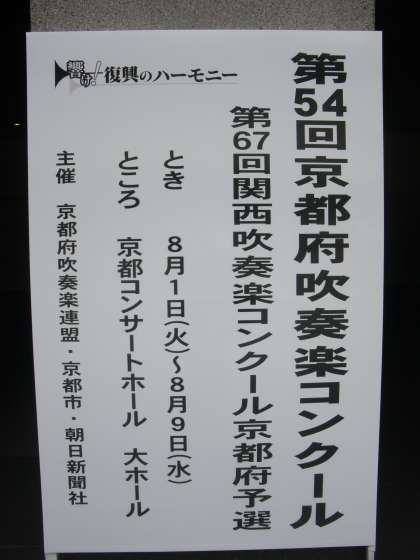 響け!復興のハーモニー
第54回京都府吹奏楽コンクール
第67回関西吹奏楽コンクール京都府予選
とき 8月1日(火)~8月9日(水)
ところ 京都コンサートホール 大ホール
主催 京都府吹奏楽連盟・京都市・朝日新聞社